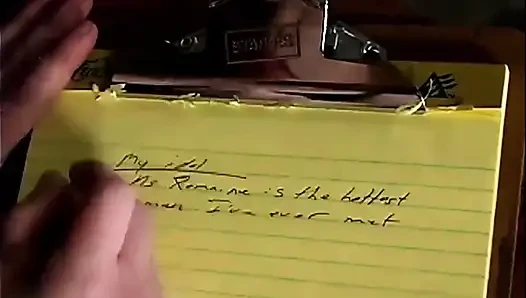 STAPLES
My idol
Ms Romaine is the hottest
man I've ever met